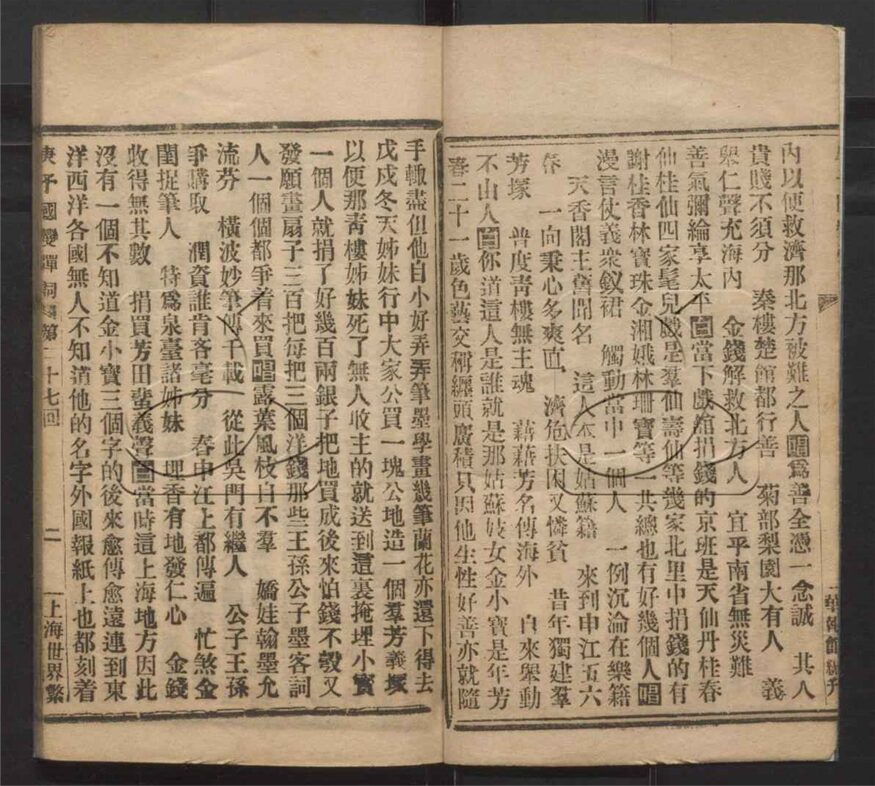 內以便救濟那北方被難之人唱爲善全憑一念誠　其人
貴賤不須分　秦樓楚館都行善　菊部梨園大有人　義
舉仁聲充海內　金錢解救北方人　宜乎南省無災難
善氣彌綸享太平白當下戲館捐錢的京班是天仙丹桂春
仙桂仙四家髦兒戲是羣仙壽仙等幾家北里中捐錢的有
謝桂香林寶珠金湘娥林珊寶等一共總也有好幾個人唱
漫言仗義衆釵裙　觸動當中一個人　一例沉淪在樂籍
天香閣主舊聞名　這人本是姑蘇籍　來到申江五六
春　一向秉心多爽直　濟危扶困又憐貧　昔年獨建羣
芳塚　普度靑樓無主魂　藉藉芳名傳海外　自來舉動
不由人白你道這人是誰就是那姑蘇妓女金小寶是年芳
春二十一歲色藝交稱纏頭廣積只因他生性好善亦就隨
手輙盡但他自小好弄弄筆墨學畫幾筆蘭花亦還下得去
戊戌冬天姊妹行中大家公買一塊公地造一個羣芳義塚
以便那靑樓姊妹死了無人收主的就送到這裏掩埋小寶
一個人就捐了好幾百兩銀子把地買成後來怕錢不彀又
發願畫扇子三百把每把三個洋錢那些王孫公子墨客詞
人一個個都爭着來買唱露葉風枝自不羣　嬌娃翰墨允
流芬　橫波妙筆傳千載　從此吳門有繼人　公子王孫
爭購取　潤資誰肯吝毫分　春申江上都傳遍　忙煞金
閨捉筆人　特爲泉臺諸姊妹　埋香有地發仁心　金錢
收得無其數　捐買芳田蜚義聲白當時這上海地方因此
沒有一個不知道金小寶三個字的後來愈傳愈遠連到東
洋西洋各國無人不知道他的名字外國報紙上也都刻着
庚子國變彈詞　第二十七回　二　上海世界繁